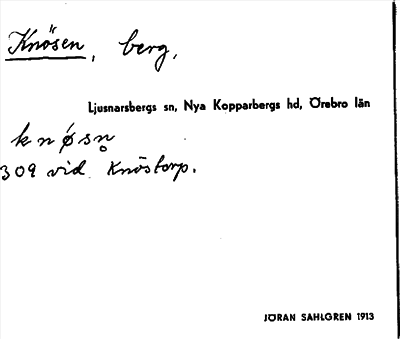 Knösen, berg,
Ljusnarsbergs sn, Nya Kopparbergs hd, Örebro län
k n ǿ s n̥
309 vid Knöstorp.
JÖRAN SAHLGREN 1913